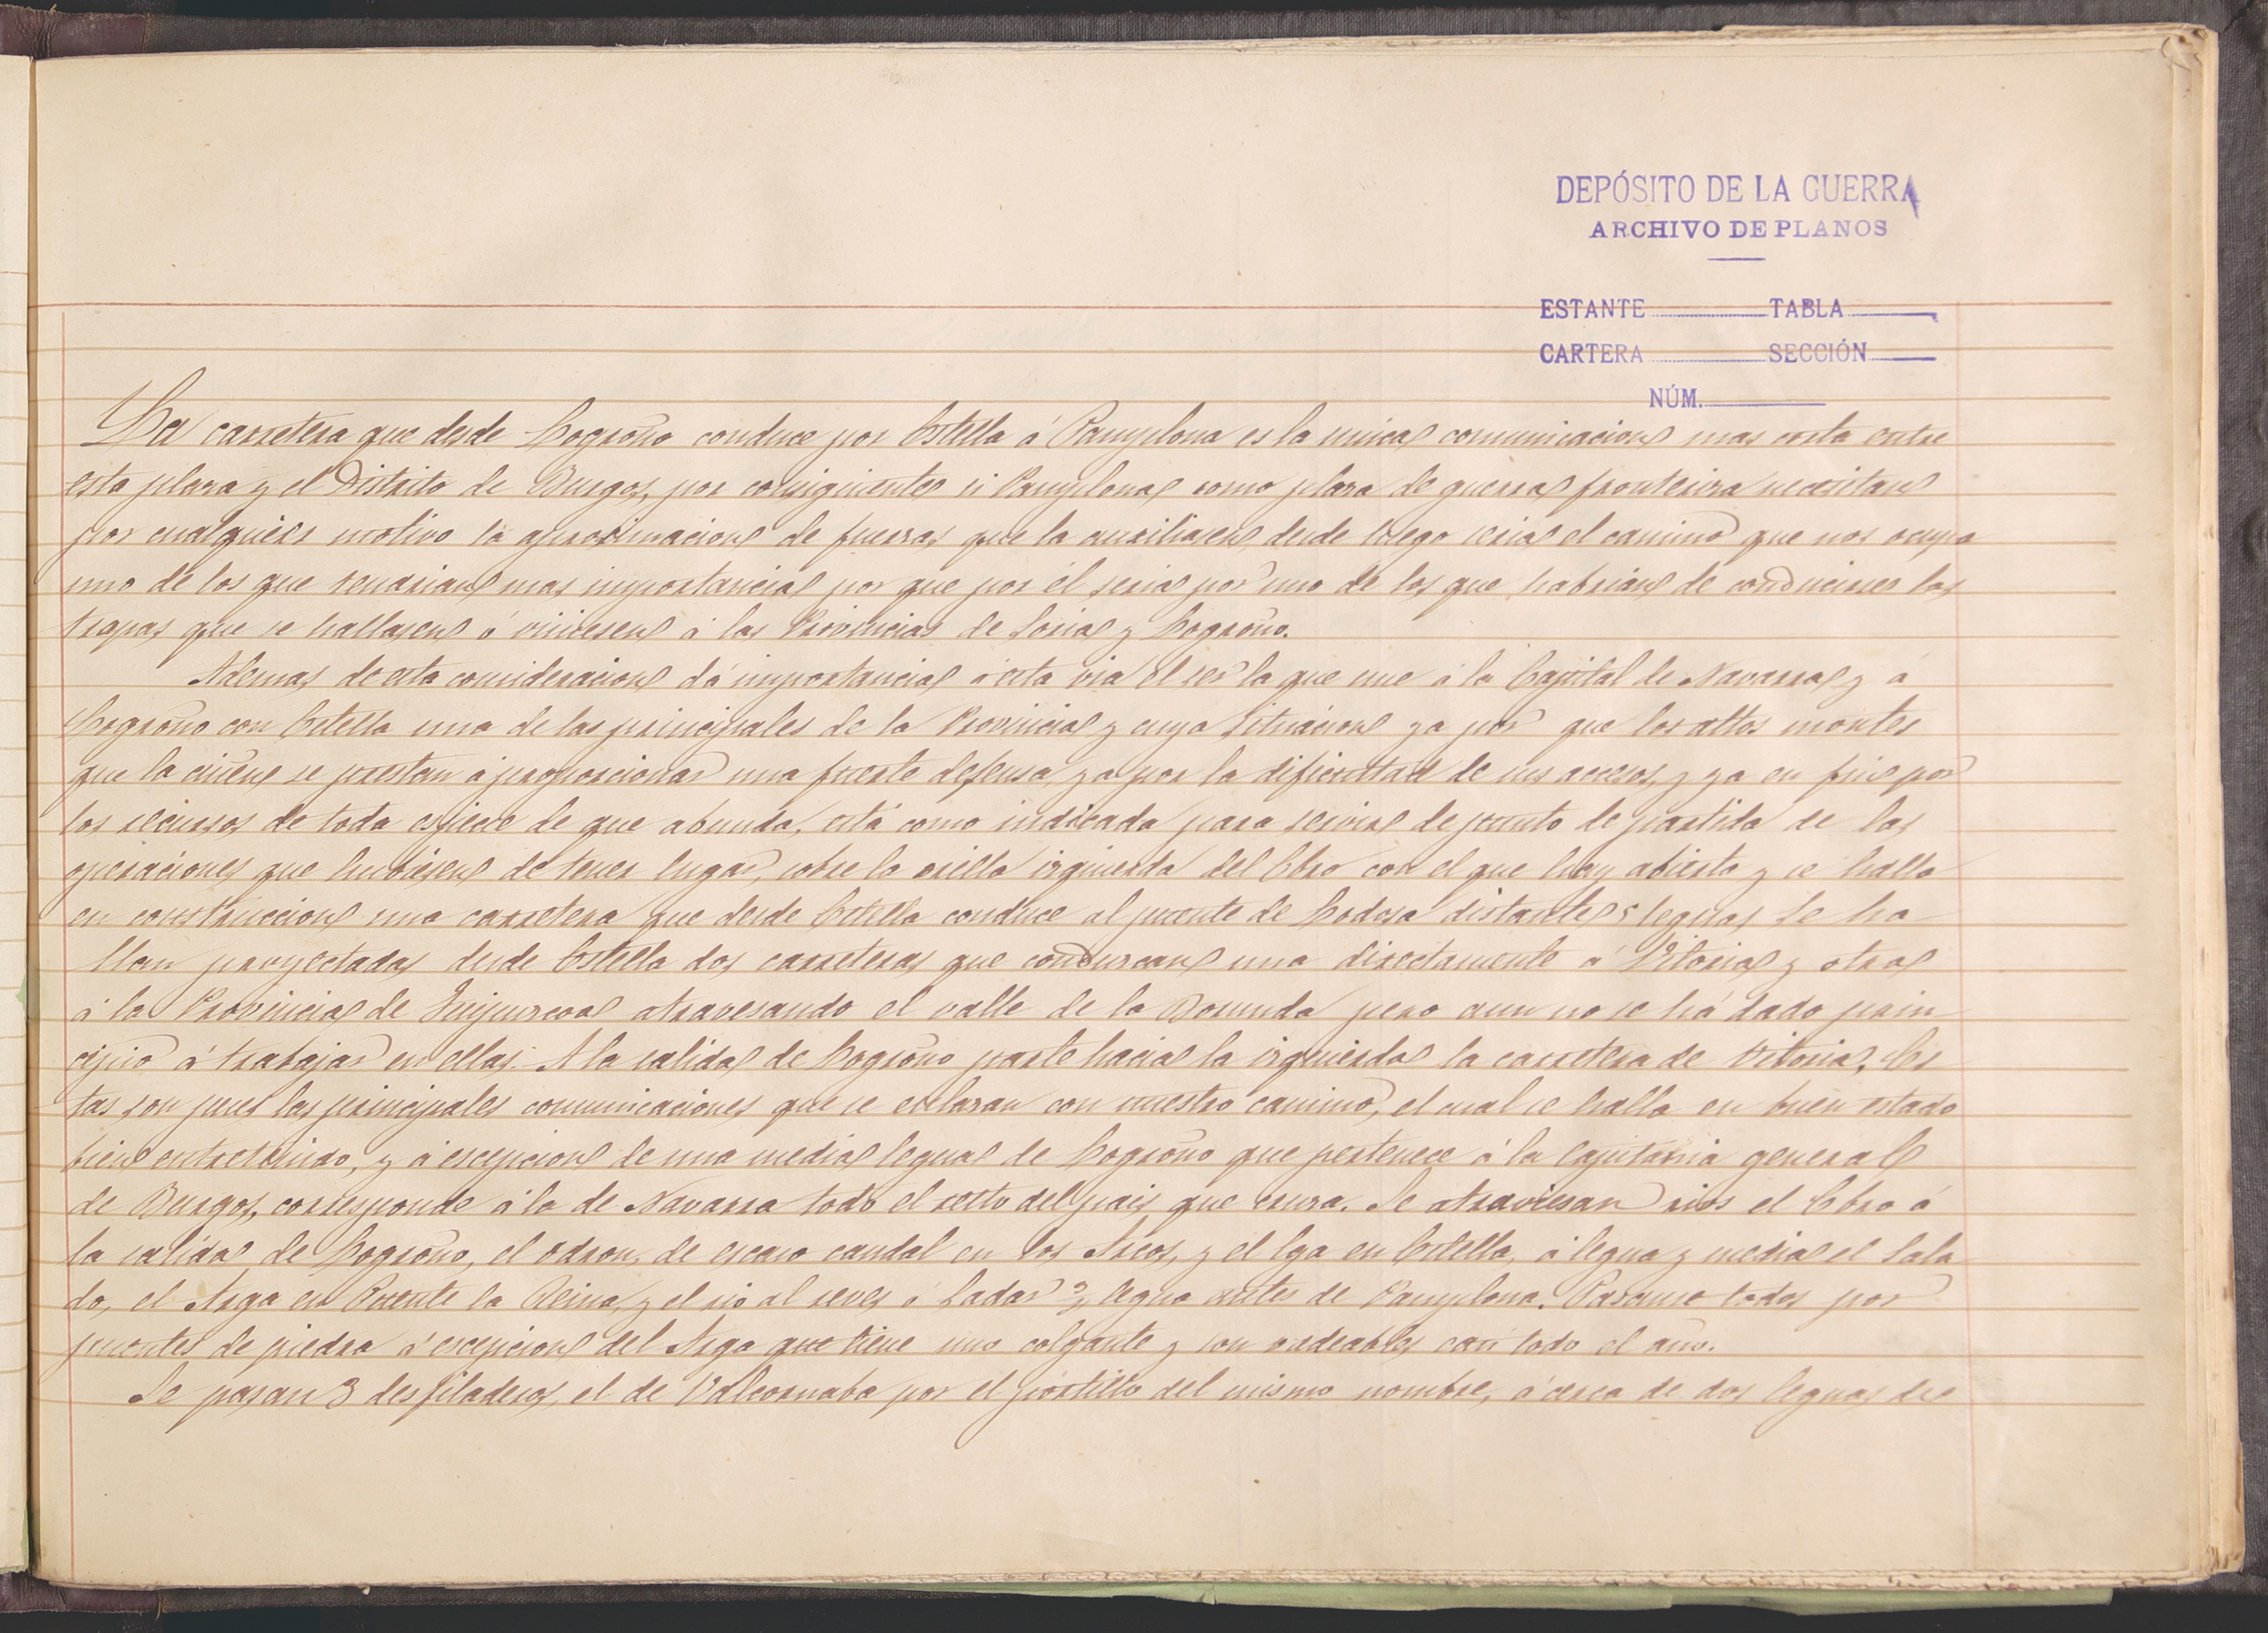 DEPÓSITO DE LA GUERRA
ARCHIVO DE PLANOS
ESTANTE TABLA
CARTERA SECCIÓN
NÚM.
La carretera que desde Logroño conduce por Estella á Pamplona es la unica comunicacion mas corta entre
esta plaza y el Distrito de Burgos, por consiguiente si Pamplona como plaza de guerra fronteriza necesitase
por cualquier motivo la aproximacion de fuerzas que la auxiliasen, desde luego seria el camino que nos ocupa
uno de los que tendrian mas importancia por que por él seria por uno de los que habrian de conducirse las
tropas que se hallasen ó viniesen á las Provincias de Soria y Logroño.
Ademas de esta consideracion dá importancia á esta via el ser la que une á la Capital de Navarra y á
Logroño con Estella una de las principales de la Provincia y cuya situacion ya por que los altos montes
que la ciñen se prestan á proporcionar una fuerte defensa, ya por la dificultad de sus accesos, y ya en fin por
los recursos de toda especie de que abunda, está como indicada para servir de punto de partida de las
operaciones que hubiesen de tener lugar, sobre la orilla izquierda del Ebro con el que hay abierta y se halla
en construccion una carretera que desde Estella conduce al puente de Lodosa distante 5 leguas. Se ha
llan proyectadas desde Estella dos carreteras que conduzcan una directamente á Vitoria y otra
á la Provincia de Guipuzcoa atravesando el valle de la Borunda pero aun no se há dado prin
cipio á trabajar en ellas. A la salida de Logroño parte hacia la izquierda la carretera de Vitoria, Es
tas son pues las principales comunicaciones que se enlazan con nuestro camino, el cual se halla en buen estado
bien entretenido, y á escepcion de una media legua de Logroño que pertenece á la Capitania general
de Burgos, corresponde á la de Navarra todo el resto del pais que cruza. Se atraviesan rios el Ebro á
la salida de Logroño, el Odron, de escaso caudal en los Arcos, y el Ega en Estella, á legua y media el Sala
do, el Arga en Puente la Reina, y el rio al reves ó Sadar legua antes de Pamplona. Pasanse todos por
puentes de piedra á escepcion del Arga que tiene uno colgante y son vadeables casi todo el año.
Se pasan 3 desfiladeros, el de Valcornaba por el portillo del mismo nombre, á cerca de dos leguas de